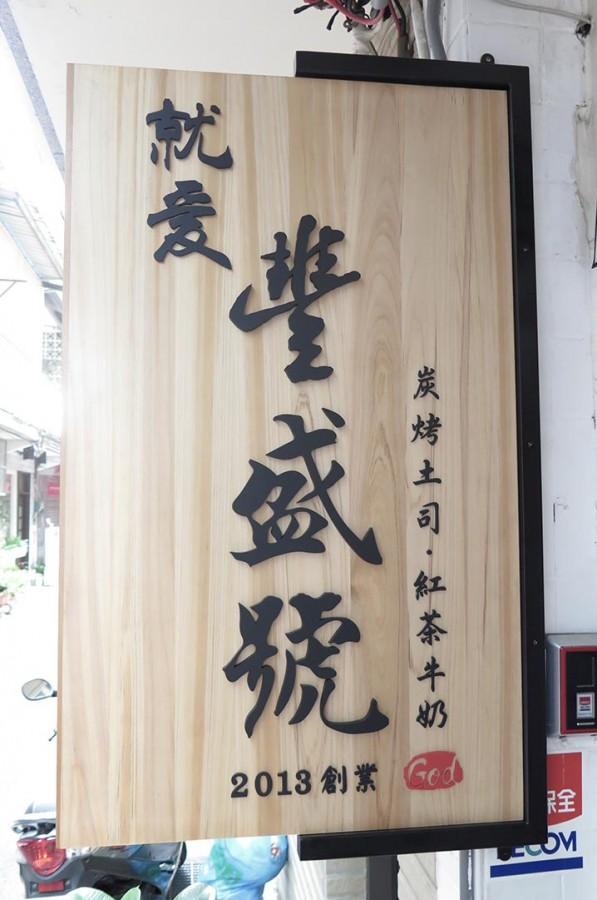 就愛
豐盛號
炭烤土司·紅茶牛奶
2013創業
God
保全
ECOM